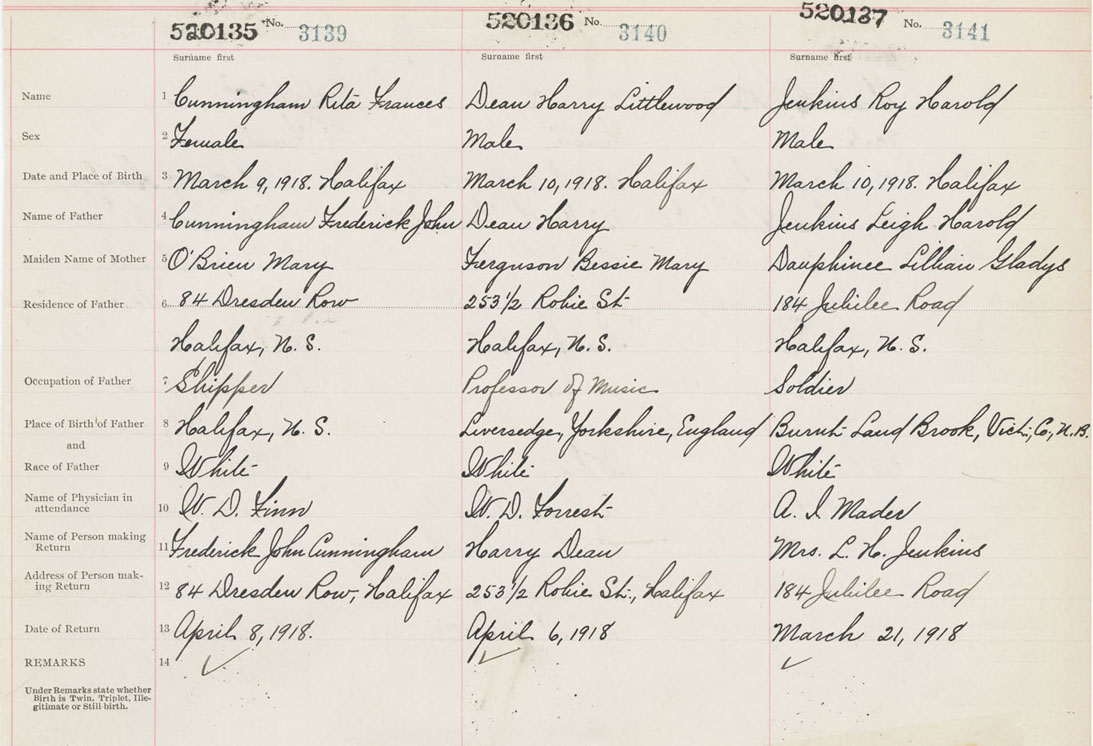 520135 No. 3139 520136 No. 3140 520137 No. 3141
Surname first Surname first Surname first
Name 1 Cunningham Rita Frances Dean Harry Littlewood Jenkins Roy Harold
Sex 2 Female Male Male
Date and Place of Birth 3 March 9, 1918. Halifax March 10, 1918. Halifax March 10, 1918. Halifax
Name of Father 4 Cunningham Frederick John Dean Harry Jenkins Leigh Harold
Maiden Name of Mother 5 O'Brien Mary Ferguson Bessie Mary Dauphinee Lillian Gladys
Residence of Father 6 84 Dresden Row 253 1/2 Robie St. 184 Jubilee Road
Halifax, N. S. Halifax, N. S. Halifax, N. S.
Occupation of Father 7 Shipper Professor of Music Soldier
Place of Birth of Father 8 Halifax, N. S. Liversedge, Yorkshire, England Burnt Land Brook, Vict. Co., N.B.
and
Race of Father 9 White White White
Name of Physician in
attendance 10 W. D. Finn W. D. Forrest A. I Mader
Name of Person making
Return 11 Frederick John Cunningham Harry Dean Mrs. L. H. Jenkins
Address of Person mak-
ing Return 12 84 Dresden Row, Halifax 253 1/2 Robie St., Halifax 184 Jubilee Road
Date of Return 13 April 8, 1918. April 6, 1918 March 21, 1918
REMARKS 14
Under Remarks state whether
Birth is Twin, Triplet, Ille-
gitimate or Still-birth.